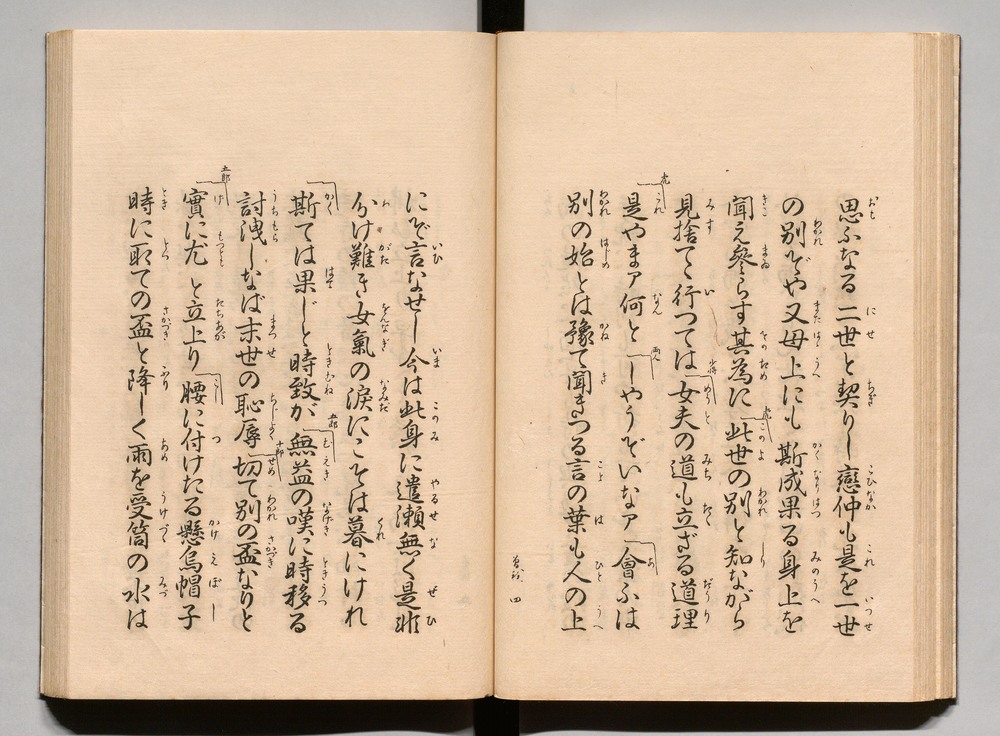 思ふなる二世と契りし戀仲も是を一世
の別ぞや又母上にも斯成果る身上を
聞え參らす其為に此世の別と知ながら
見捨てゝ行つては女夫の道も立ざる道理
是やまア何としやうぞいなア會ふは
別の始とは豫て聞きつる言の葉も人の上
四
にぞ言なせし今は此身に遣瀬無く是非
分け難き女氣の涙にこそは暮にけれ
斯ては果じと時致が無益の嘆に時移る
討洩しなば末世の恥辱切て別の盃なりと
實に尤と立上り腰に付けたる懸烏帽子
時に取ての盃と降しく雨を受筒の水は